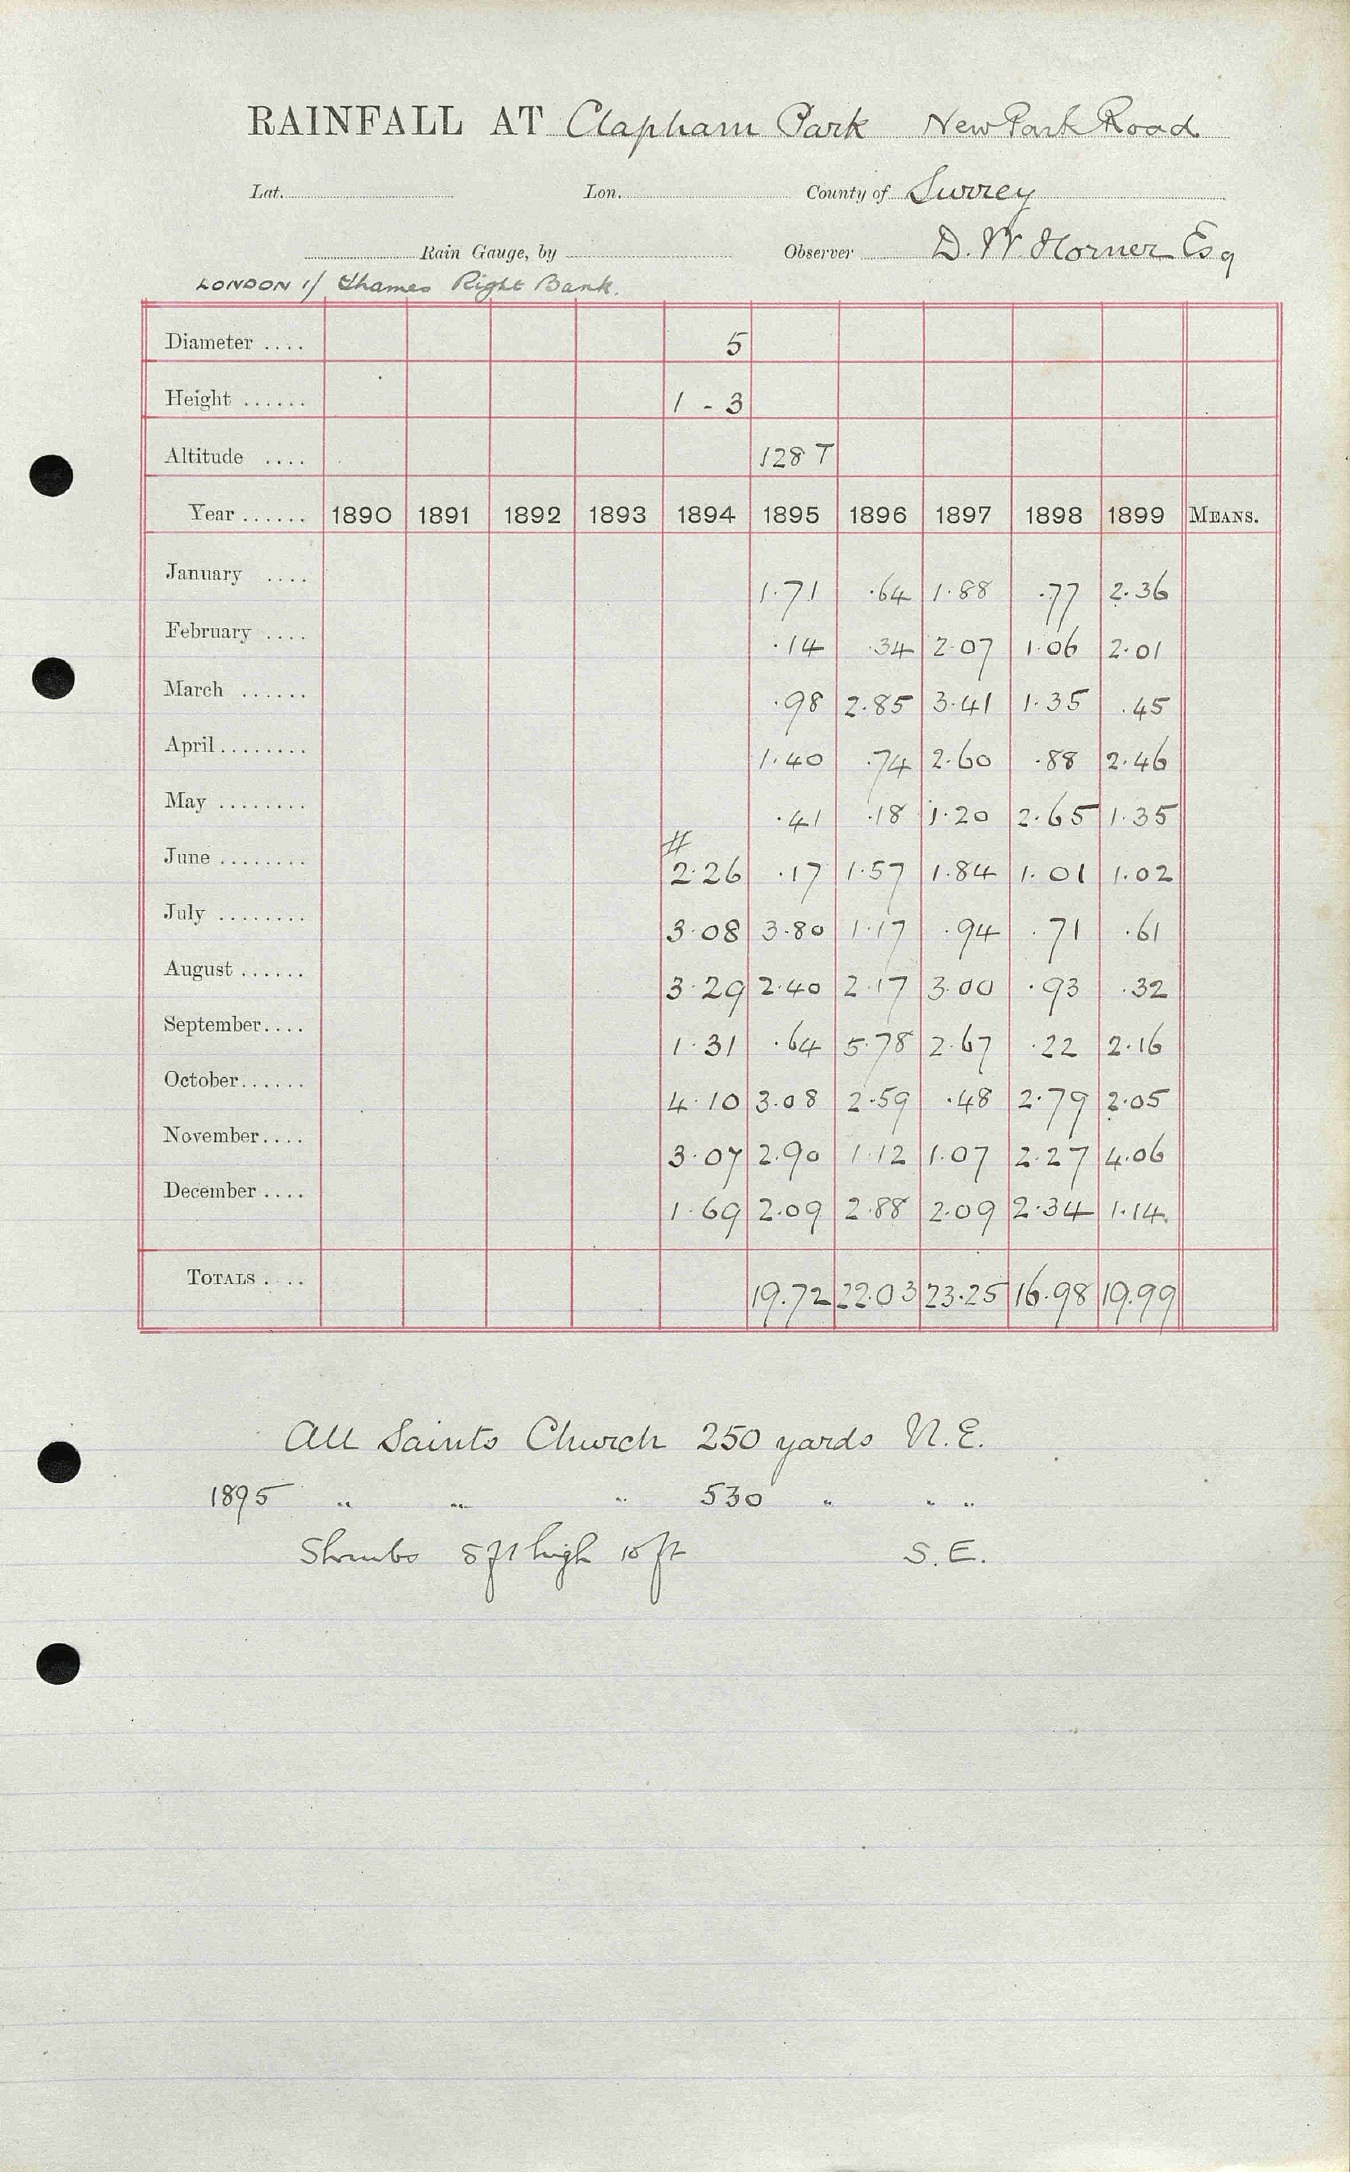 RAINFALL AT Clapham Park New Park Road
Lat. Lon. County of Surrey
Rain Gauge, by Observer D. W. Horner Esq
LONDON 1/ Thames Right Bank.
Diameter .... 5
Height ...... 1 - 3
Altitude .... 128 T
Year ...... 1890 1891 1892 1893 1894 1895 1896 1897 1898 1899 MEANS.
January .... 1.71 .64 1.88 .77 2.36
February .... .14 .34 2.07 1.06 2.01
March ...... .98 2.85 3.41 1.35 .45
April ........ 1.40 .74 2.60 .88 2.46
May ........ .41 .18 1.20 2.65 1.35
#
June ........ 2.26 .17 1.57 1.84 1.01 1.02
July ........ 3.08 3.80 1.17 .94 .71 .61
August ...... 3.29 2.40 2.17 3.00 .93 .32
September.... 1.31 .64 5.78 2.67 .22 2.16
October...... 4.10 3.08 2.59 .48 2.79 2.05
November.... 3.07 2.90 1.12 1.07 2.27 4.06
December .... 1.69 2.09 2.88 2.09 2.34 1.14
TOTALS .... 19.72 22.03 23.25 16.98 19.99
All Saints Church 250 yards N.E.
1895 " " " 530 " " "
Shrubs 8 ft high 10 ft S.E.